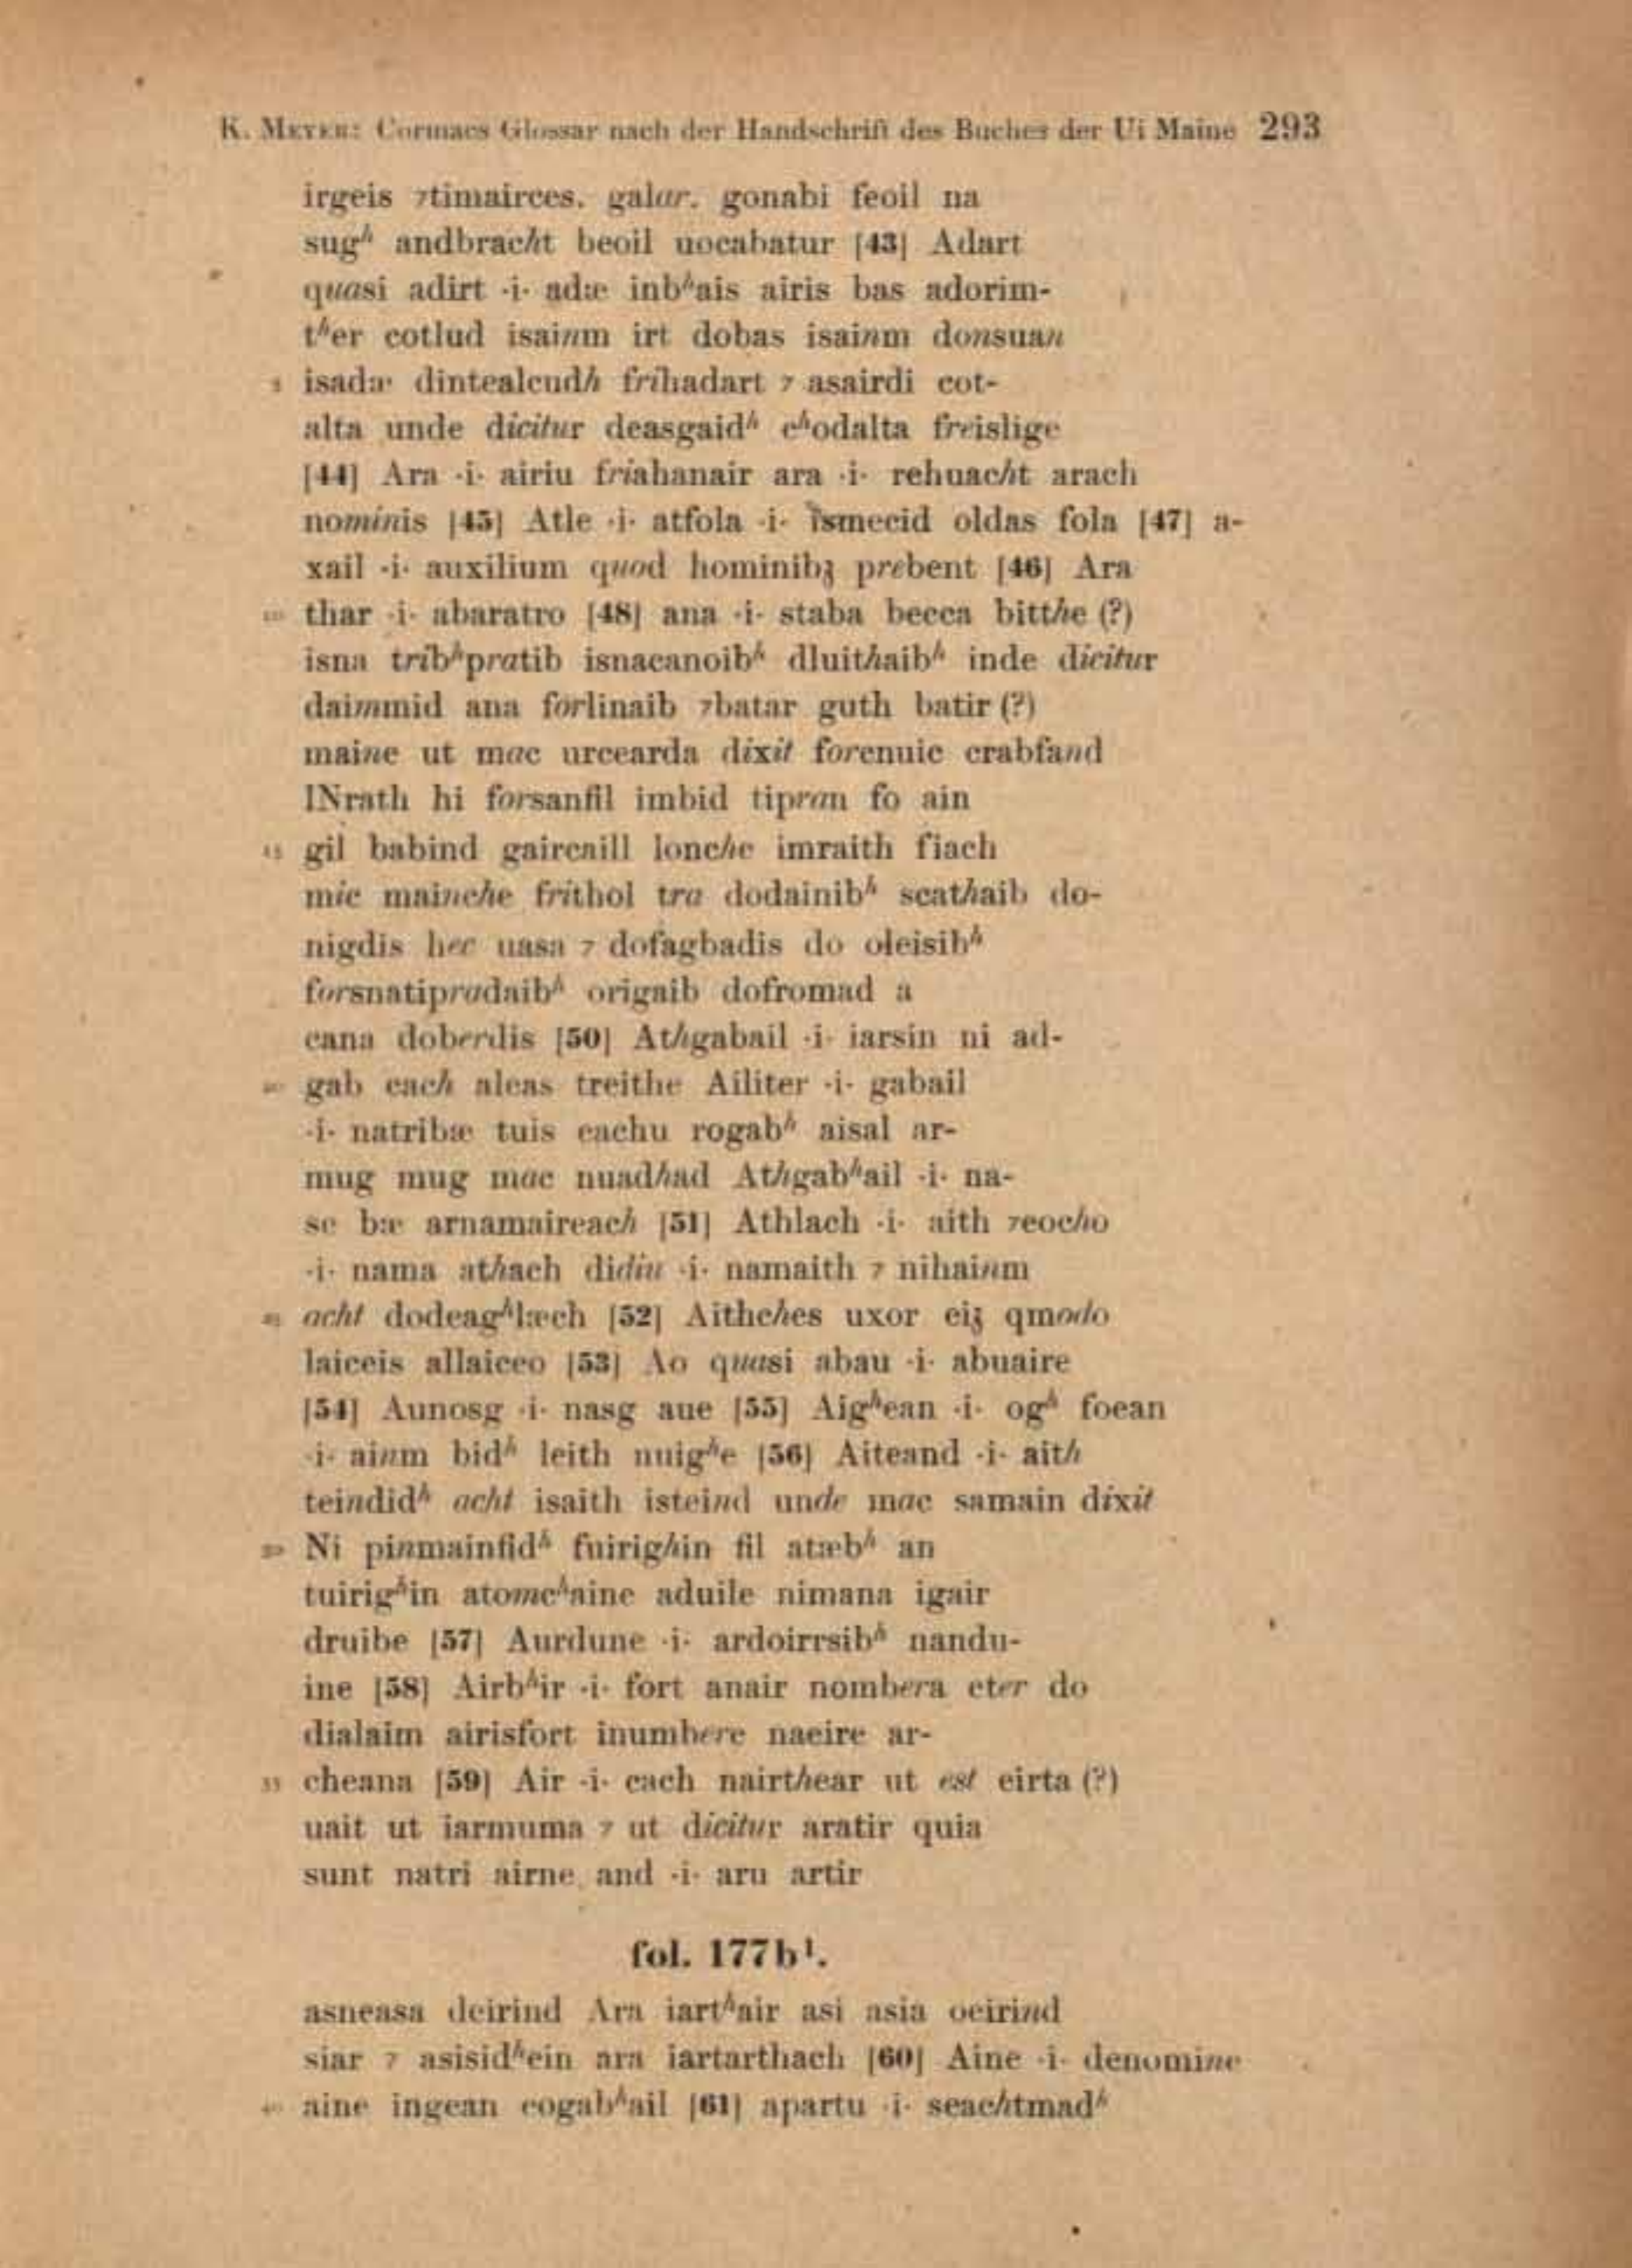 K. Meyer: Cormacs Glossar nach der Handschrift des Buches der Ui Maine 293
irgeis ⁊timairces. galar. gonabi feoil na
sugʰ andbracht beoil uocabatur [43] Adart
quasi adirt ·i· adæ inbʰais airis bas adorim-
tʰer cotlud isainm irt dobas isainm donsuan
5 isadæ dintealcudh frihadart ⁊ asairdi cot-
alta unde dicitur deasgaidʰ cʰodalta freislige
[44] Ara ·i· airiu friahanair ara ·i· rehuacht arach
nominis [45] Atle ·i· atfola ·i· ismecid oldas fola [47] a-
xail ·i· auxilium quod hominibꝫ prebent [46] Ara
10 thar ·i· abaratro [48] ana ·i· staba becca bitthe (?)
isna tribʰpratib isnacanoibʰ dluithaibʰ inde dicitur
daimmid ana forlinaib ⁊batar guth batir (?)
maine ut mac urcearda dixit forcnuic crabfand
INrath hi forsanfil imbid tipran fo ain
15 gil babind gaircaill lonche imraith fiach
mic mainche frithol tra dodainibʰ scathaib do-
nigdis hec uasa ⁊ dofagbadis do oleisibʰ
forsnatipradaibʰ origaib dofromad a
cana doberdis [50] Athgabail ·i· iarsin ni ad-
20 gab cach aleas treithe Ailiter ·i· gabail
·i· natribæ tuis cachu rogabʰ aisal ar-
mug mug mac nuadhad Athgabʰail ·i· na-
se bæ arnamaireach [51] Athlach ·i· aith ⁊eocho
·i· nama athach didiu ·i· namaith ⁊ nihainm
25 acht dodeagʰlæch [52] Aithches uxor eiꝫ qmodo
laiceis allaiceo [53] Ao quasi abau ·i· abuaire
[54] Aunosg ·i· nasg aue [55] Aigʰean ·i· ogʰ foean
·i· ainm bidʰ leith nuigʰe [56] Aiteand ·i· aith
teindidʰ acht isaith isteind unde mac samain dixit
30 Ni pinmainfidʰ fuirighin fil atæbʰ an
tuirigʰin atomcʰaine aduile nimana igair
druibe [57] Aurdune ·i· ardoirrsibʰ nandu-
ine [58] Airbʰir ·i· fort anair nombera eter do
dialaim airisfort inumbere naeire ar-
35 cheana [59] Air ·i· cach nairthear ut est eirta (?)
uait ut iarmuma ⁊ ut dicitur aratir quia
sunt natri airne and ·i· aru artir
fol. 177b¹.
asneasa deirind Ara iartʰair asi asia oeirind
siar ⁊ asisidʰein ara iartarthach [60] Aine ·i· denomine
40 aine ingean eogabʰail [61] apartu ·i· seachtmadʰ